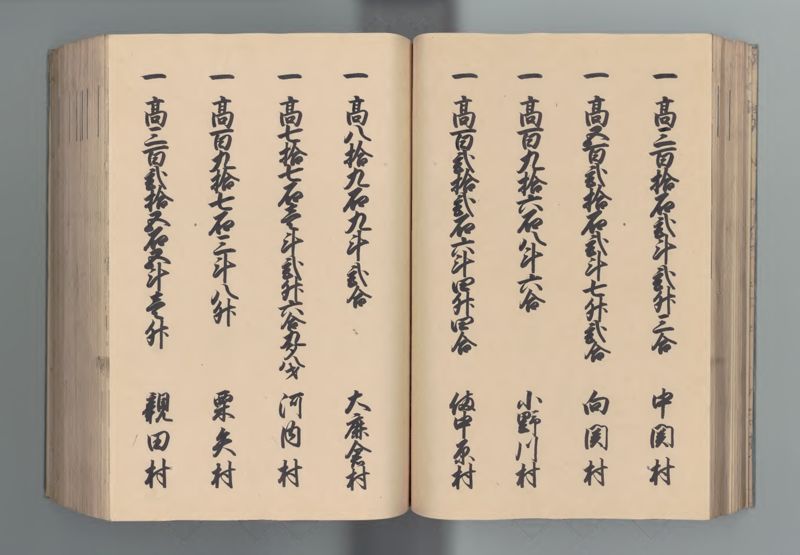 一 高三百拾石弐斗弐升三合 中関村
一 高五百弐拾石弐斗七升弐合 向関村
一 高百九拾六石八斗六合 小野川村
一 高百弐拾弐石六斗四升四合 備中原村
一 高八拾九石九斗弐合 大鹿倉村
一 高七拾七石壱斗弐升六合九夕八才 河内村
一 高百九拾七石三斗八升 栗矢村
一 高三百弐拾五石五斗壱升 親田村